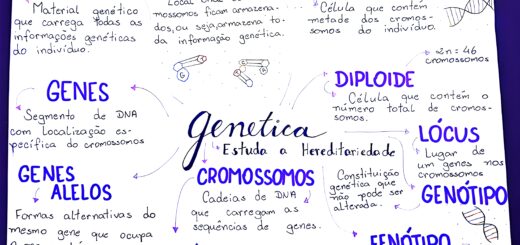 Material genético
que carrega todas as
informações genéticas
do indivíduo.
mossomos ficam armazena-
dos, ou seja, armazena to-
da informação genética.
Célula que contém
metade dos cromos-
somos do indivíduo.
2n = 46
cromossomos
GENES
Segmento de DNA
com localização es-
pecífica do cromossomos
DIPLOIDE
Célula que contém o
número total de cromos-
somos.
genética
Estuda a Hereditariedade
LÓCUS
Lugar de
um genes nos
cromossomos
GENES
ALELOS
Formas alternativas do
mesmo gene que ocupa
CROMOSSOMOS
Cadeias de DNA
que carregam as
sequências de genes.
Constituição
genética que
não pode ser
alterada.
GENÓTIPO
FENÓTIPO